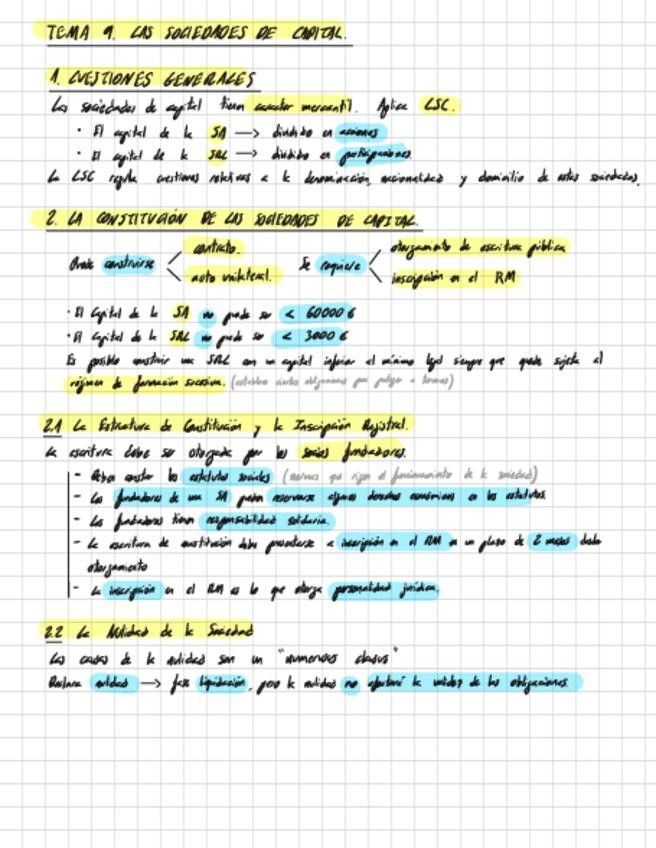 TEMA 9. LAS SOCIEDADES DE CAPITAL.
1. CUESTIONES GENERALES
Las sociedades de capital tienen caracter mercantil. Aplica LSC.
· El capital de la SA → dividido en acciones
· El capital de la SRL → dividido en participaciones.
La LSC regula cuestiones relativas a la denominación, nacionalidad y domicilio de estas sociedades.
2. LA CONSTITUCIÓN DE LAS SOCIEDADES DE CAPITAL.
contrato. otorgamiento de escritura pública
Puede construirse < Se requiere <
acto unilateral. inscripción en el RM
· El Capital de la SA no puede ser < 60000 €
· El Capital de la SRL no puede ser < 3000 €
Es posible construir una SRL con un capital inferior al mínimo legal siempre que quede sujeta al
régimen de formación sucesiva. (establece ciertas obligaciones para proteger a terceros)
2.1 La Estructura de Constitución y la Inscripción Registral.
La escritura debe ser otorgada por los socios fundadores.
- Deben constar los estatutos sociales (normas que rigen el funcionamiento de la sociedad)
- Los fundadores de una SA pueden reservarse algunos derechos económicos en los estatutos.
- Los fundadores tienen responsabilidad solidaria.
- La escritura de constitución debe presentarse a inscripción en el RM en un plazo de 2 meses desde
otorgamiento
- La inscripción en el RM es lo que otorga personalidad jurídica.
2.2 La Nulidad de la Sociedad
Las causas de la nulidad son un "numerus clausus"
Declara nulidad → fase liquidación, pero la nulidad no afectará la validez de las obligaciones.